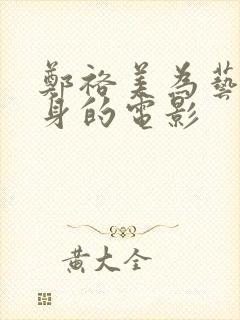 鄭裕美為藝
身的電影
黃大全